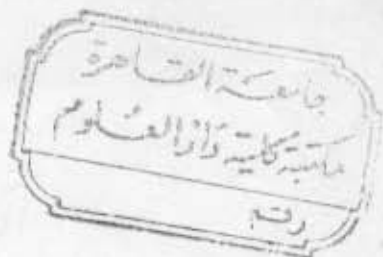 جامعة القاهرة
مكتبة كلية دار العلوم
رقم